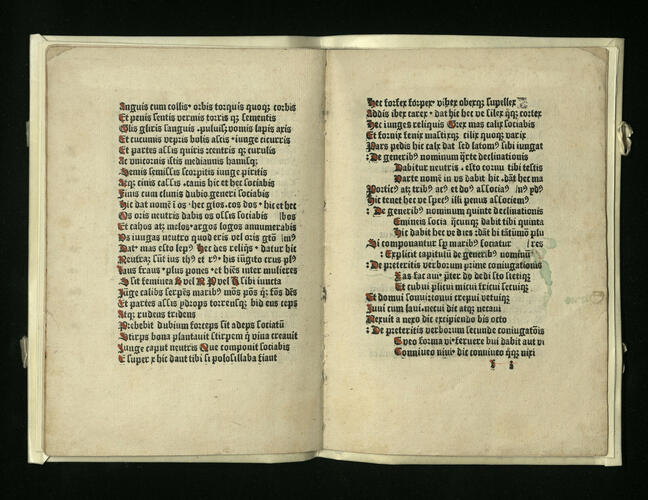 Anguis cum collis· orbis torquis quoqꝫ corbis
Et penis sentis vermis torris qꝫ sementis
Glis gliris sanguis ·puluisqꝫ vomis lapis axis
Et cucumis vepris bolis assis· iunge cicurris
Et partes assis quiris ꝛcentris qꝫ curulis
Ac vnicornis istis mediannis hamisqꝫ
Semis semissis scorpitis iunge piritis
Atqꝫ cinis callis ·canis hic et hec sociabis
Finis cum clunis dubio generi sociabis
Hic dat nomē i os ·hec glos·cos dos· hic et hec
Os oris neutris dabis os ossis sociabis bos
Et cahos atqꝫ melos· argos logos annumerabis
Vs iungas neutro quod eris vel oris
Dat· mas esto lepꝰ Hec des reliqͥs· datur hic
Neutraqꝫ sūt ius thꝰ et rꝰ· his iūgito crus plꝰ
Laus fraus· plus pones· et hiēs inter mulieres
S sit feminea S vel N P vel S sibi iuncta
Jūge calibs serpēs maribꝰ mōs pōs qꝫ fōs dēs
Et partes assis ydrops torrensqꝫ bidens ceps
Atqꝫ rudens tridens
Prohibit dubium forceps sit adeps sociatū
Stirps bona plantauit stirpem qͥ vina creauit
Junge caput neutris Que componit sociabis
E super x hic dant tibi si polosillaba fiant
Hec forfex forpex· vibex obexqꝫ supellex
Addis ibex carex· dat hic hec ve silex qꝫ cortex
Hec iunges reliquis Grex mas calix sociabis
Et fornix fenix mastixqꝫ cilix quoqꝫ varix
Pars pedis hic calx dat sed latomꝰ sibi iungat
De generibꝰ nominum qͣrte declinationis
Dabitur neutris ·esto cornu tibi testis
Parte nomē in vs dabit hic ·dāt hec ma
Porticꝰ atqꝫ tribꝰ acꝰ et domꝰ
Hic tenet hec ve specꝰ illi penus associemꝰ
De generibꝰ nominum quinte declinationis
Emineis socia qͥcunqꝫ dabit tibi quinta
Hic dabit hec ve dies
Si componantur sꝑ maribꝰ sociatur res
Explicit capitulū de generibꝰ nominū
De preteritis verborum prime coniugationis
As fac aui· preter do dedi sto stetiqꝫ
Et cubui plicui micui fricui secuiqꝫ
Et domui sonui tonui crepui vetuiqꝫ
Juui cum laui ·necui dic atqꝫ necaui
Nexuit a nexo dic excipiendo bis octo
De preteritis verborum secunde coniugatōis
Eveo forma vi· feruere bui dabit aut vi
Conniueo niui· dic conniueo qꝫ nixi